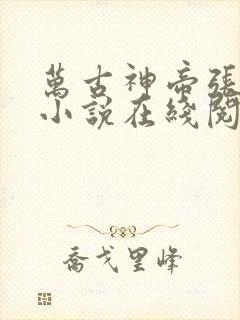 萬古神帝張
小說在綫閱
喬戈里峰